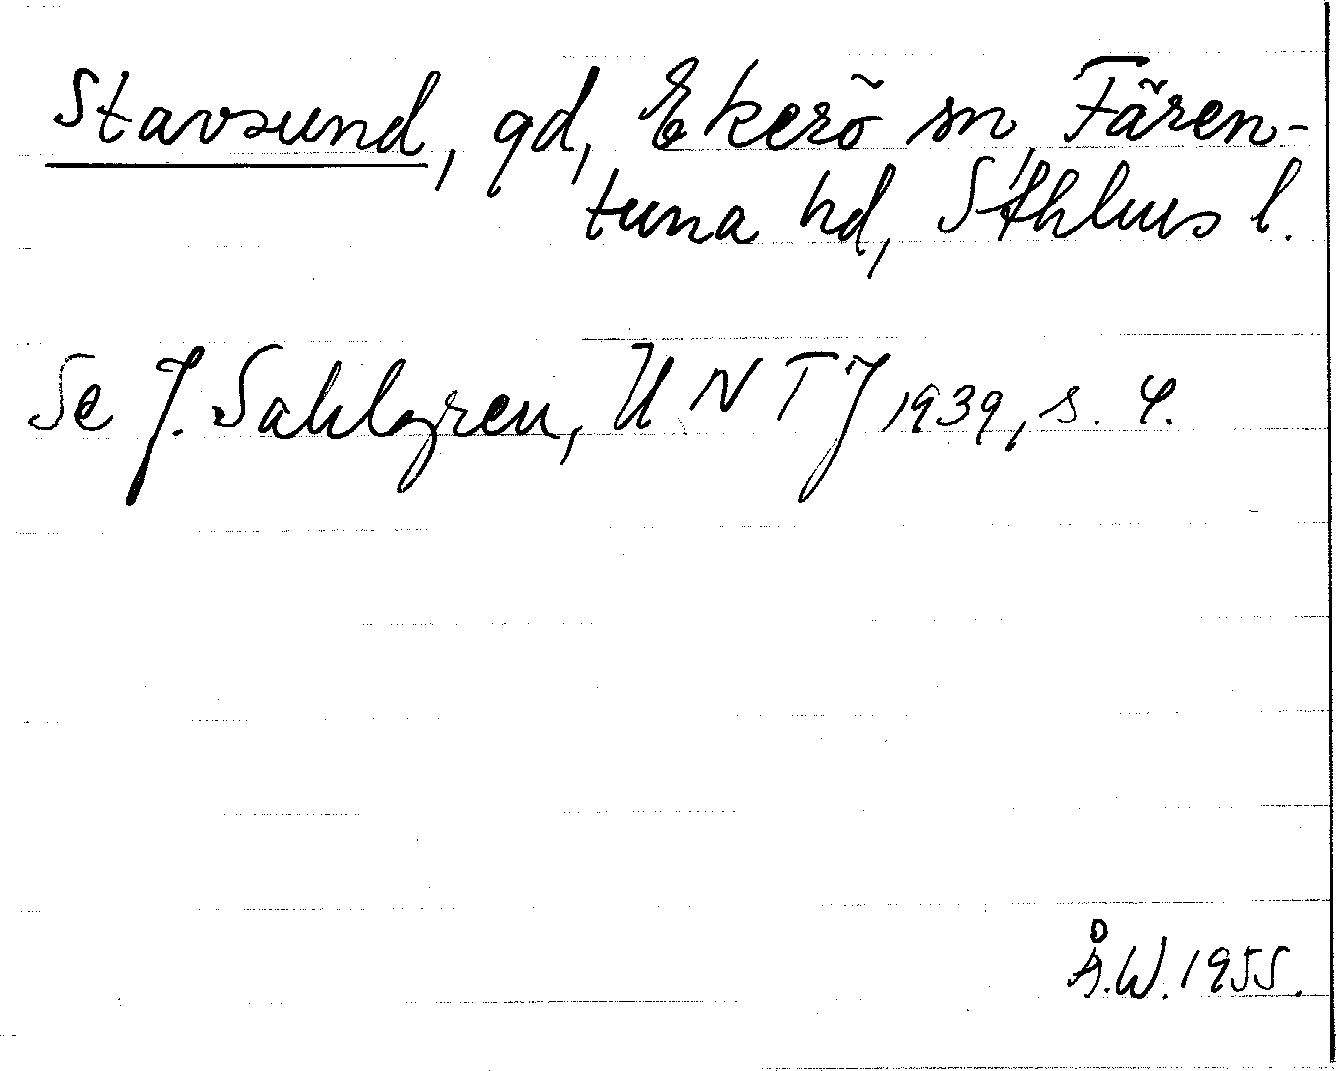 Stavsund, gd, Ekerö sn, Fären-
tuna hd, Sthlms l.
Se J. Sahlgren, UNTJ 1939, s. 4.
Å.W. 1955.